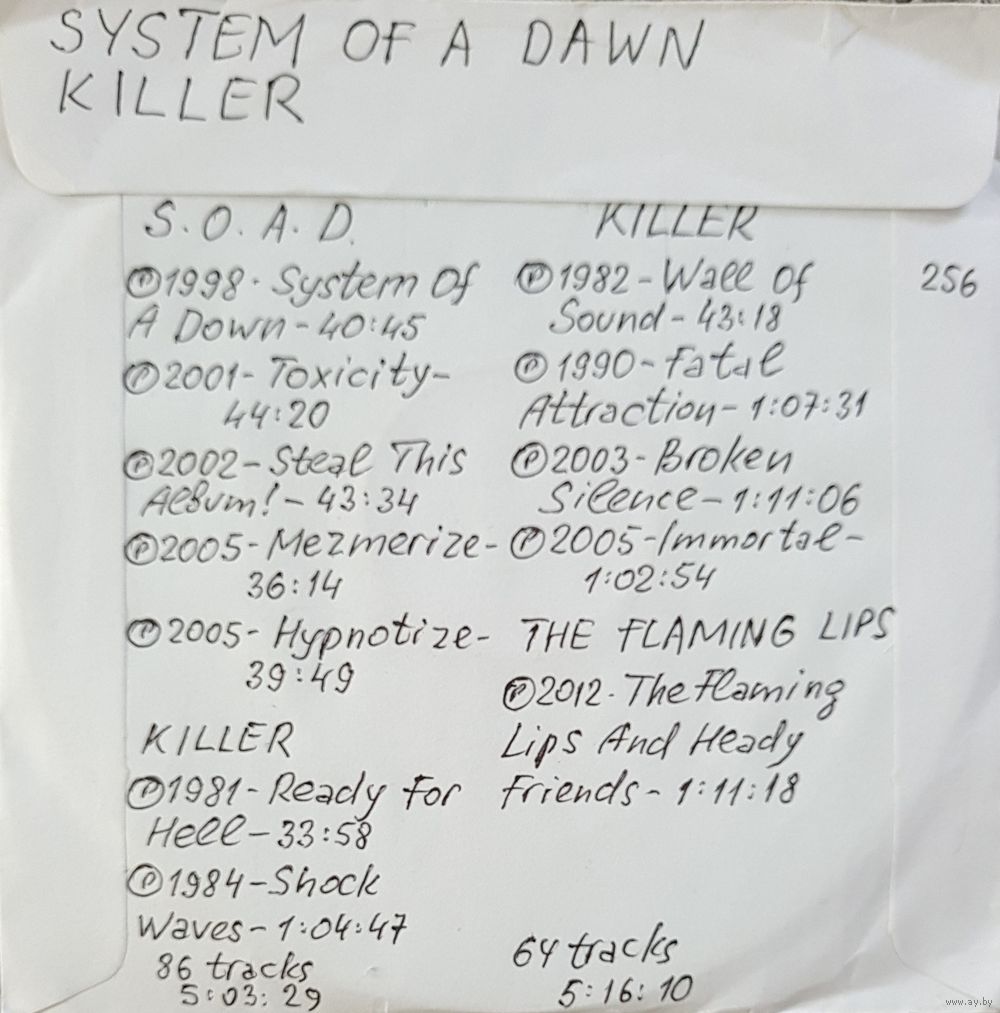 SYSTEM OF A DAWN
KILLER
S.O.A.D.
℗1998-System Of
A Down-40:45
℗2001-Toxicity-
44:20
℗2002-Steal This
Album!-43:34
℗2005-Mezmerize-
36:14
℗2005-Hypnotize-
39:49
KILLER
℗1981-Ready For
Hell-33:58
℗1984-Shock
Waves-1:04:47
86 tracks
5:03:29
KILLER
℗1982-Wall Of
Sound-43:18
℗1990-Fatal
Attraction-1:07:31
℗2003-Broken
Silence-1:11:06
℗2005-Immortal-
1:02:54
THE FLAMING LIPS
℗2012-The Flaming
Lips And Heady
Friends-1:11:18
64 tracks
5:16:10
256
www.ay.by